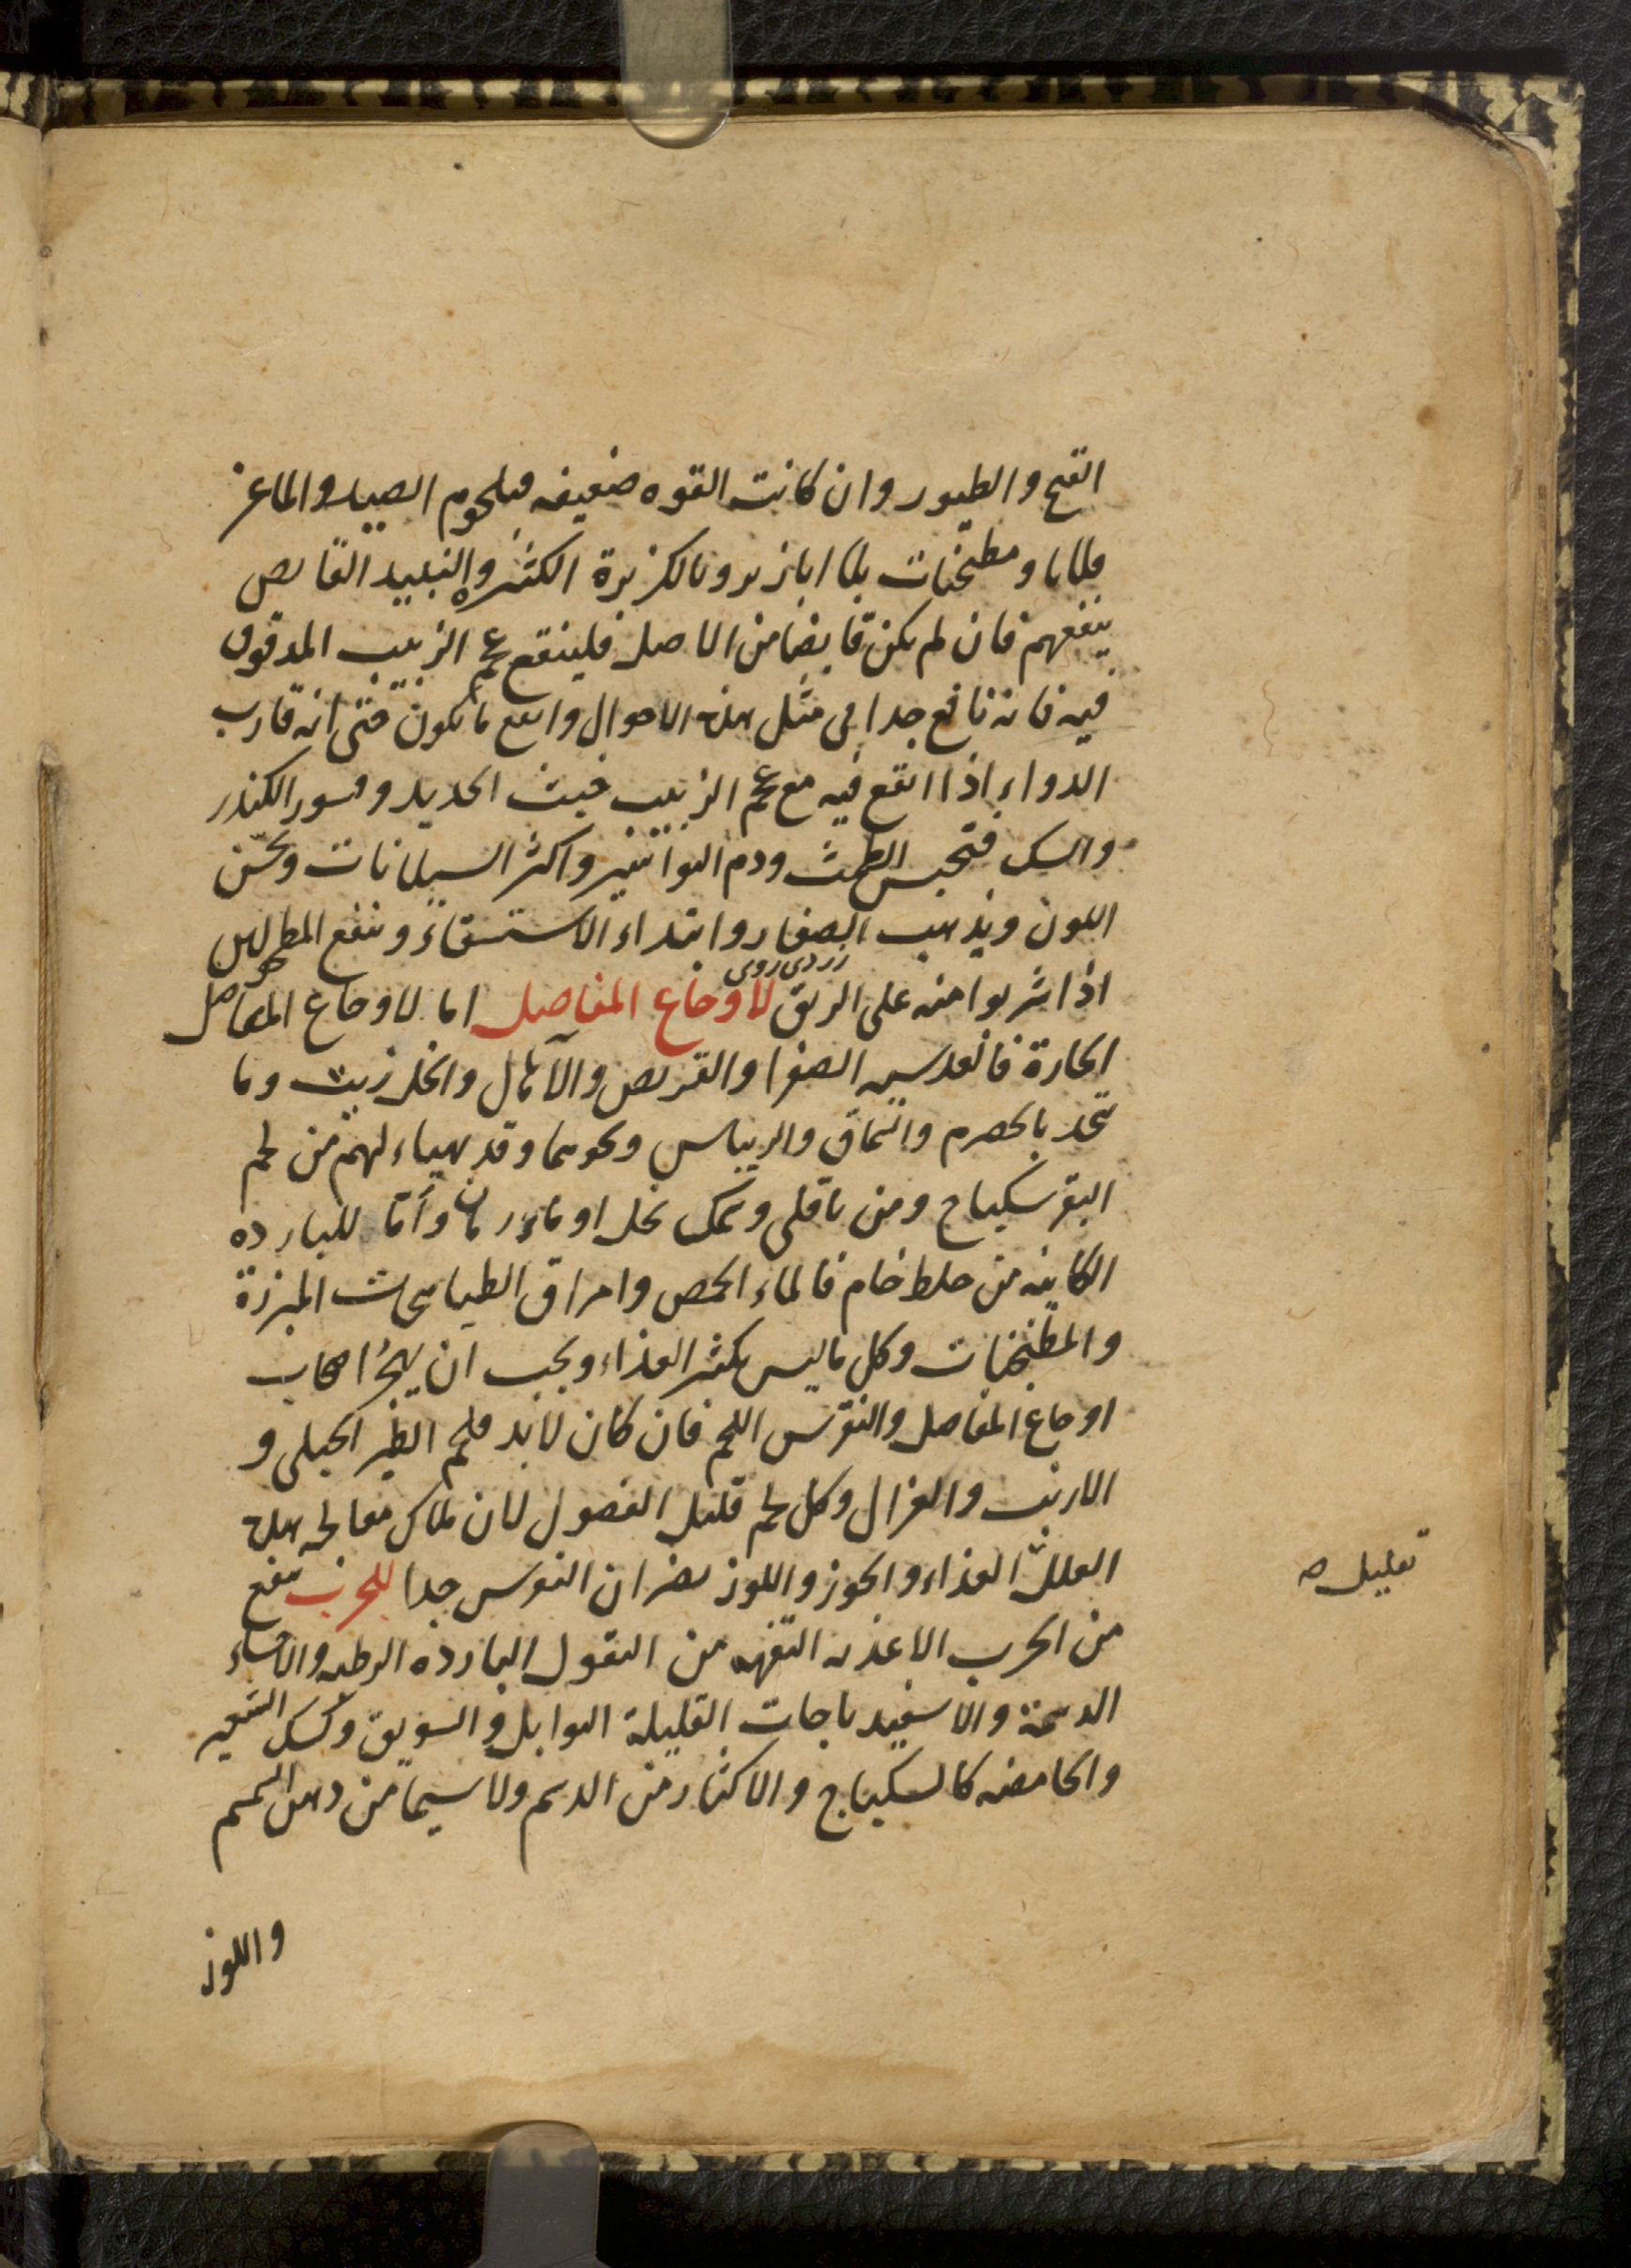 القبج والطيور وان كانت القوه ضعيفه فبلحوم الصيد والماعز
قلايا ومطجنات بلا ابازير وبالكزبرة الكثيره والنبيد القابص
ينفعهم فان لم يكن قابضا من الاصل فلينقع عجم الزبيب المدقوق
فيه فانه نافع جدا فى مثل هذه الاحوال وانفع ما يكون حتى انه قارب
الدواء اذا انقع فيه مع عجم الزبيب خبث الحديد وقسور الكندر
والسك فتحبس الطمث ودم البواسير واكثر السيلانات ويحسّن
اللون ويذهب الصفار وابتداء الاستسقاء وينفع المطحولين
زردى روى
اذا شربوا منه على الريق لاوجاع المفاصل اما لاوجاع المفاصل
الحارة فالعدسيه الصفرا والقريص والآمال والخل زيت وما
يتخذ بالحصرم والسماق والريباس ونحوها وقد يهياء لهم من لحم
البقر سكباج ومن باقلى وسمك بخل او ماء رمان وأمّا للبارده
الكاينه من خلط خام فالماء الحمص وامراق الطباهجات المبزرة
والمطجنات وكل ما ليس بكثير الغذاء ويجب ان يهجر اصحاب
اوجاع المفاصل والنقرس اللحم فان كان لابد فلحم الطير الجبلى و
الارنب والغزال وكل لحم قليل الفضول لان ملاك معالجه هذه
العلل الغذاء والجوز واللوز يضران النقرس جدا للجرب ينفع
تقليل صه
من الجرب الاغذيه التفهه من البقول البارده الرطبه والاحساء
الدسمة والاسفيدباجات القليلة التوابل والسويق وكشك الشعير
والحامضه كالسكباج والاكثار من الدسم ولا سيما من دهن السمسم
واللوز